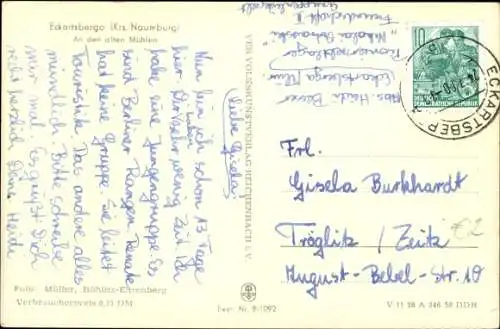 Eckartsberga (Krs. Naumburg)
An den alten Mühlen
Liebe Gisela!
Nun bin ich schon 13 Tage
hier. Wir haben sehr wenig Zeit. Ich
habe eine Jungengruppe. Es
sind Berliner Rangen. Renate
hat keine Gruppe. Sie leitet
Touristik. Das andere alles
mündlich. Bitte schreibe
mir mal. Es grüßt Dich
recht herzlich Deine Heidi
Foto: Müller, Böhlitz-Ehrenberg
Verbraucherpreis 0,15 DM
VEB VOLKSKUNSTVERLAG REICHENBACH i. V.
Best. Nr. B 1092
Abs. Heidi
Eckartsberga
Pionierzeltlager
"Nikolai Ostrowski"
Freundschaft II
10
DEUTSCHE DEMOKRATISCHE REPUBLIK
ECKARTSBERGA
Frl.
Gisela Burkhardt
Tröglitz / Zeitz
August-Bebel-Str. 10
€2
V 11 28 A 346 58 DDR